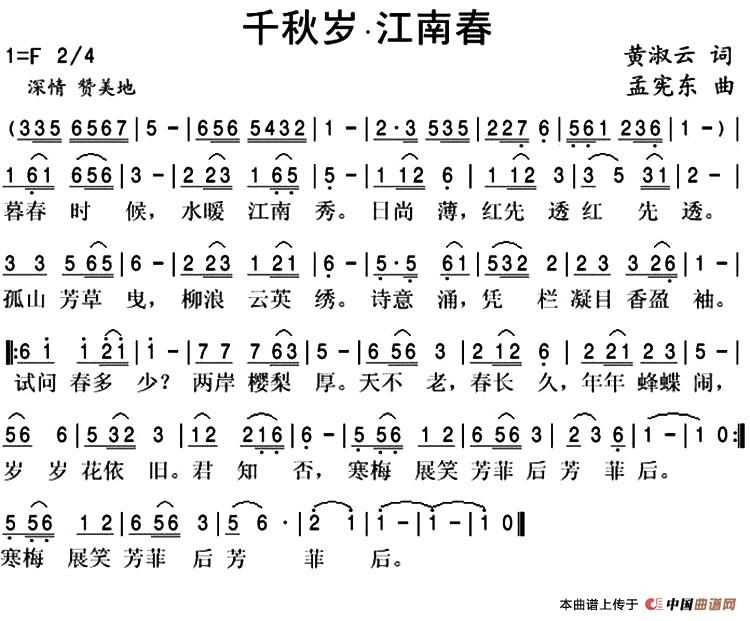 千秋岁·江南春
1=F 2/4
黄淑云 词
深情 赞美地
孟宪东 曲
(335 6567|5 -|656 5432|1 -|2·3 535|227 6|561 236|1 -)|
1 61 656|3 -|2 23 1 65|5 -|1 12 6|1 12 3|3 5 31|2 -|
暮春 时 候，水暖 江南 秀。日尚 薄，红先 透 红 先 透。
3 3 5 65|6 -|2 23 1 21|6 -|5·5 61|532 2|2 3 26|1 -|
孤山 芳草 曳，柳浪 云英 绣。诗意 涌，凭 栏 凝目 香盈 袖。
‖:6 1 1 21|1 -|7 7 7 63|5 -|6 56 3|2 12 6|2 21 2 3|5 -|
试问 春多 少？两岸 樱梨 厚。天不 老，春长 久，年年 蜂蝶 闹，
56 6|5 32 3|12 216|6 -|5 56 1 2|6 56 3|2 3 6|1 -|1 0:‖
岁 岁 花依 旧。君 知 否，寒梅 展笑 芳菲 后 芳 菲 后。
5 56 1 2|6 56 3|5 6·|2 1|1 -|1 -|1 0‖
寒梅 展笑 芳菲 后 芳 菲 后。
本曲谱上传于 中国曲谱网